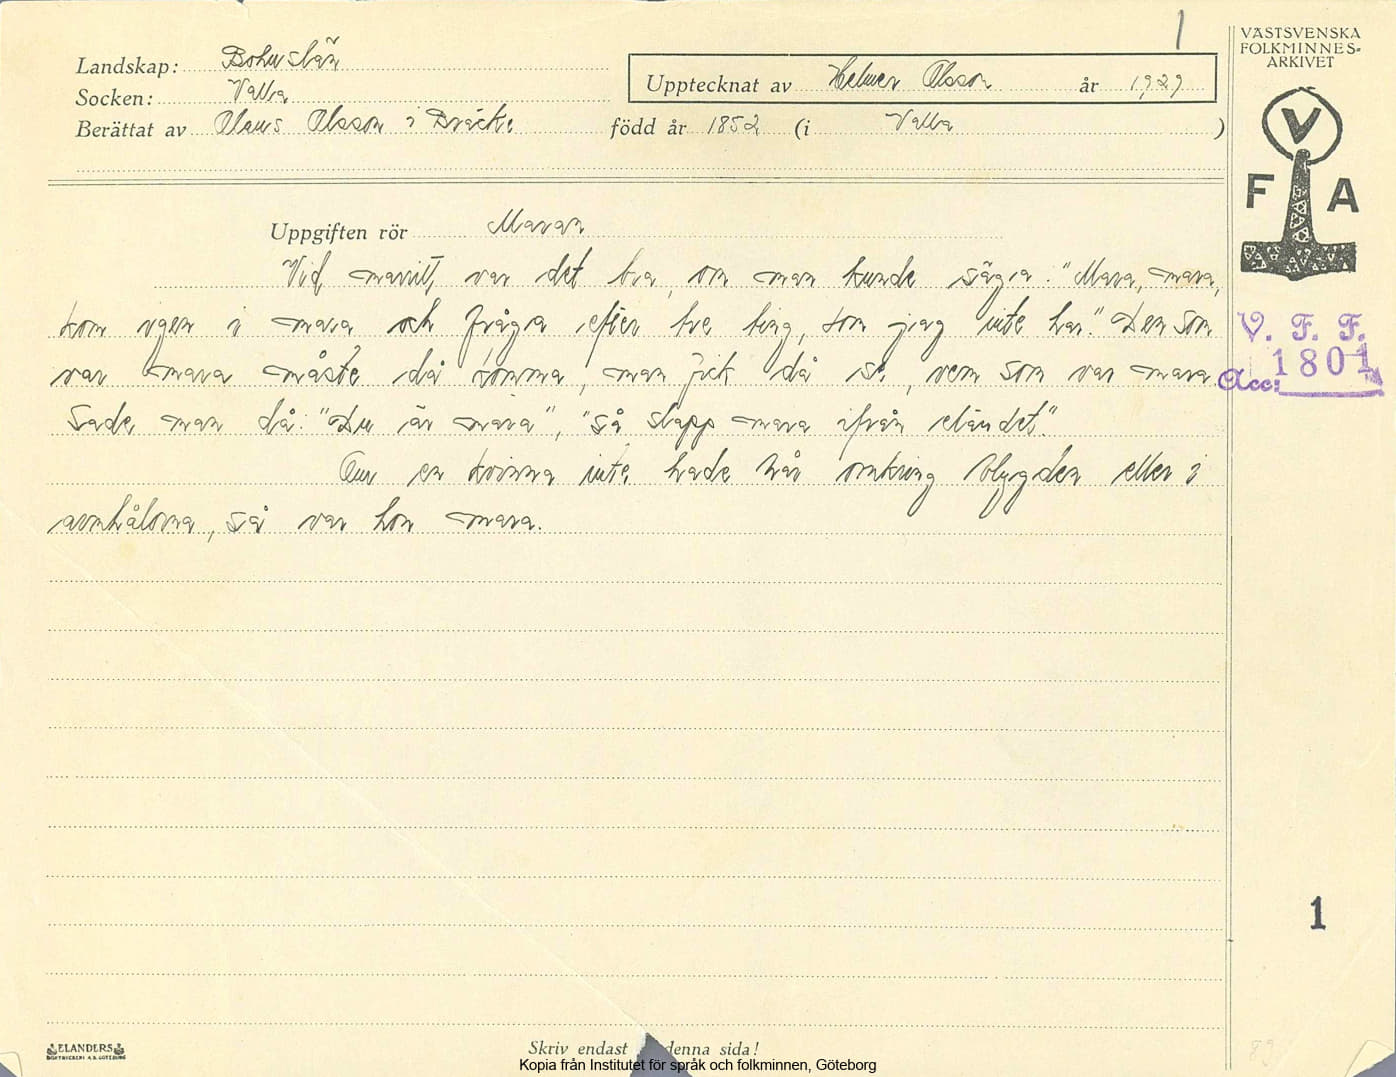 1
VÄSTSVENSKA
FOLKMINNES-
ARKIVET
Landskap: Bohuslän
Upptecknat av Helmer Olsson år 1929
Socken: Valla
Berättat av Olaus Olsson i Bräcke född år 1852 (i Valla )
V
F A
Uppgiften rör Maran
Vid maritt, var det bra, om man kunde säga: "Mara, mara,
kom igen i mara och fråga efter tre ting, som jag inte har." Den som
var mara måste då komma, man fick då se, vem som var mara.
Sade man då: "Du är mara", "så slapp mara ifrån eländet".
Om en kvinna inte hade hår omkring blygden eller i
armhålorna, så var hon mara.
V. F. F.
Acc: 1801
1
ELANDERS
BOKTRYCKERI A.B. GÖTEBORG
Skriv endast denna sida!
Kopia från Institutet för språk och folkminnen, Göteborg